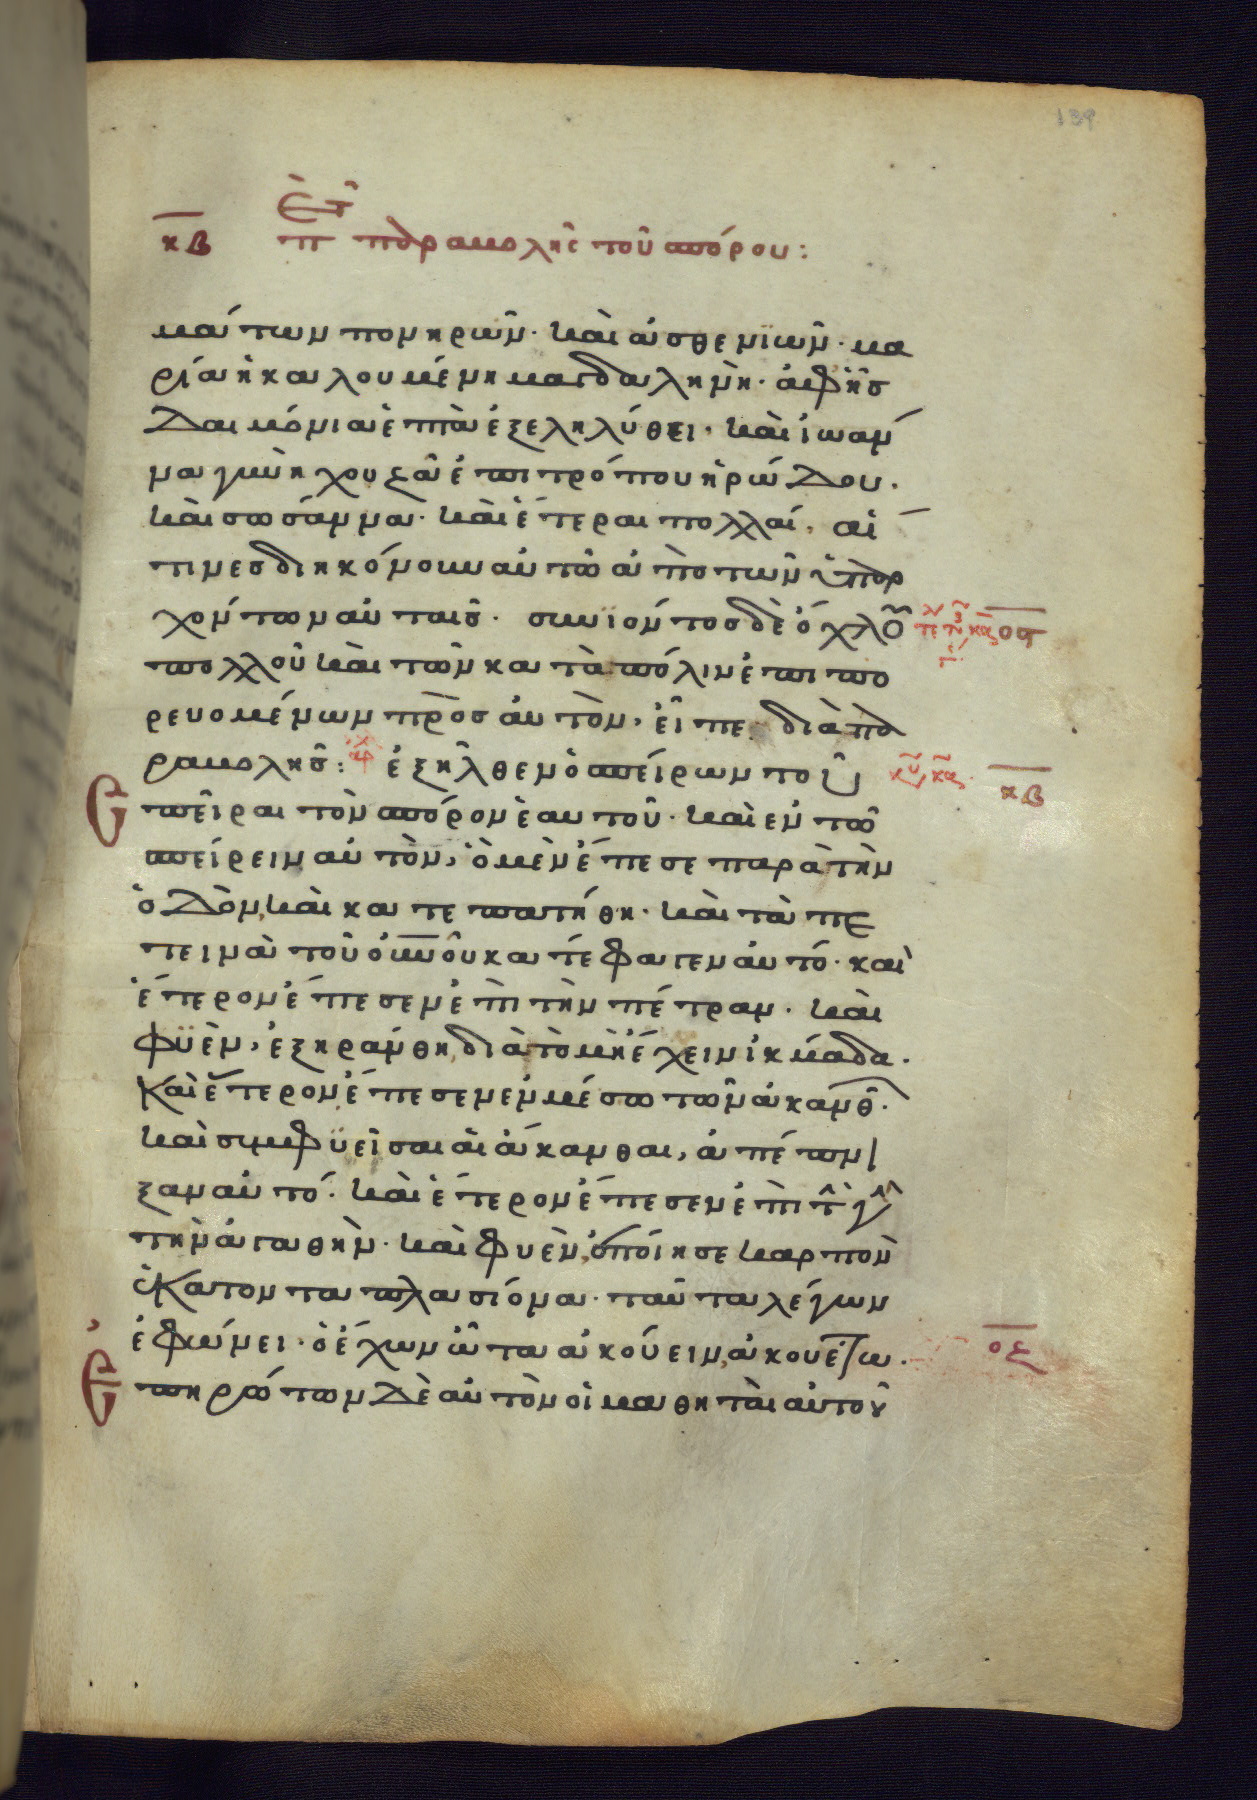 139
κβ π παραβολῆς τοῦ σπόρου:
μάτων πονηρῶν· καὶ ἀσθενϊῶν· μα
ρία ἡ καλουμένη μαγδαληνὴ· ἀφῆς
δαιμόνια ἑπτὰ ἐξεληλύθει· καὶ ἰωάν
να γυνὴ χουζᾶ ἐπιτρόπου ἡρώδου.
καὶ σωσάννα· καὶ ἕτεραι πολλαί, αἵ
τινες διηκόνουν αὐτῶ ἀπὸ τῶν ὑπαρ
χόντων αὐταῖς· συνϊόντος δὲ ὄχλου
πολλοῦ καὶ τῶν κατὰ πόλιν ἐπιπο
ρευομένων πρὸς αὐτὸν, εἶπε διὰ πα
ραβολῆς: ἐξῆλθεν ὁ σπείρων τοῦ κβ
σπεῖραι τὸν σπόρον ἑαυτοῦ· καὶ ἐν τῶ
σπείρειν αὐτὸν, ὃ μὲν ἔπεσε παρὰ τὴν
ὁδὸν, καὶ κατεπατήθη· καὶ τὰ πε
τεινὰ τοῦ οὐνοῦ κατέφαγεν αὐτό· καὶ
ἕτερον ἔπεσεν ἐπὶ τὴν πέτραν· καὶ
φϋὲν, ἐξηράνθη διὰ τὸ μὴ ἔχειν ἰκμάδα.
Καὶ ἕτερον ἔπεσεν ἐν μέσω τῶν ἀκανθ·
καὶ συμφϋεῖσαι αἱ ἄκανθαι, ἀπέπνι
ξαν αὐτό· καὶ ἕτερον ἔπεσεν ἐπὶ τ γῆν
τὴν ἀγαθὴν· καὶ φυὲν, ἐποίησε καρπὸν
ἑκατονταπλασίονα· ταῦτα λέγων
ἐφώνει· ὁ ἔχων ὦτα ἀκούειν, ἀκουέτω. οζ
Ἐπηρώτων δὲ αὐτὸν οἱ μαθηταὶ αὐτοῦ